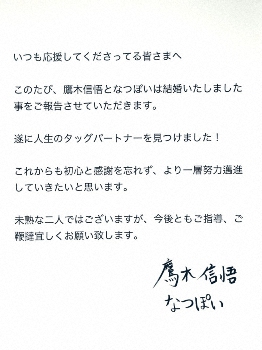 いつも応援してくださってる皆さまへ
このたび、鷹木信悟となつぽいは結婚いたしました
事をご報告させていただきます。
遂に人生のタッグパートナーを見つけました！
これからも初心と感謝を忘れず、より一層努力邁進
していきたいと思います。
未熟な二人ではございますが、今後ともご指導、ご
鞭撻宜しくお願い致します。
鷹木信悟
なつぽい